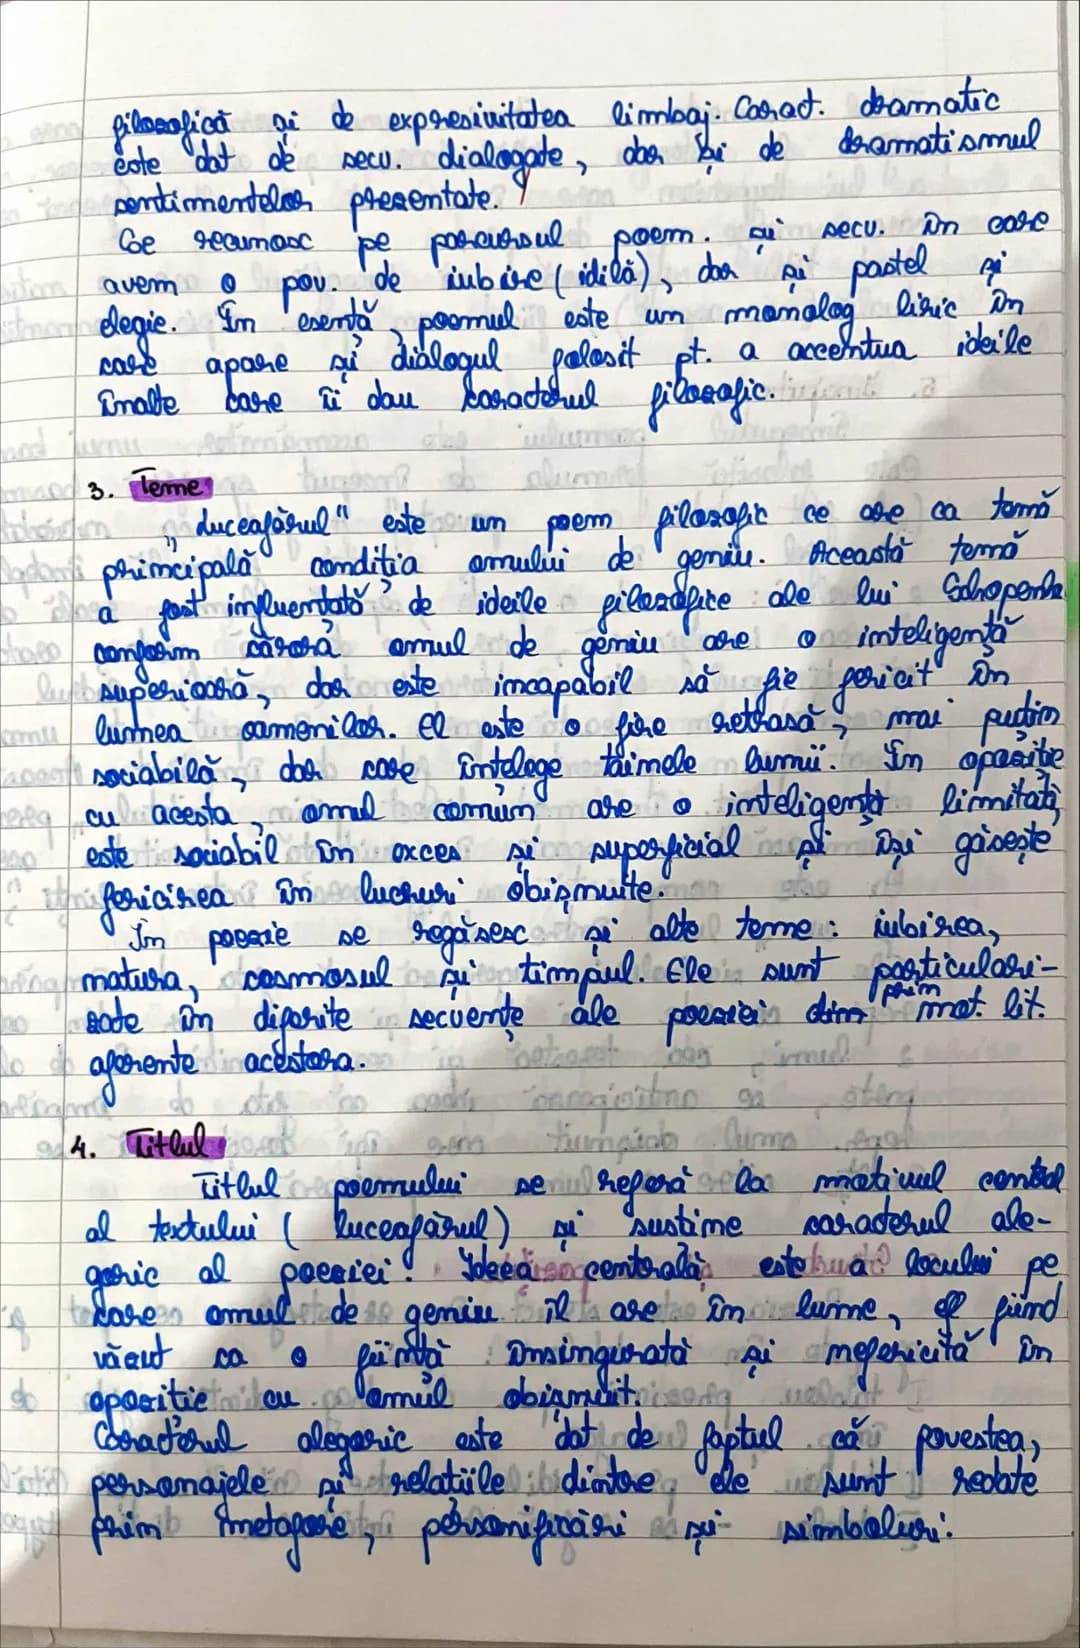 filozofică și de expresivitatea limbaj. Caract. dramatic
este dat de secv. dialogate, dar și de dramatismul
sentimentelor prezentate.
Se recunosc pe parcursul poem. și secv. în care
avem o pov. de iubire (idilă), dar și pastel și
elegie. În esență, poemul este un monolog liric în
care apare și dialogul folosit pt. a accentua ideile
înalte care îi dau caracterul filozofic.
3. Teme
„Luceafărul" este un poem filozofic ce are ca temă
principală condiția omului de geniu. Această temă
a fost influențată de ideile filozofice ale lui Schopenha
conform cărora omul de geniu are o inteligență
superioară, dar este incapabil să fie fericit în
lumea oamenilor. El este o fire retrasă, mai puțin
sociabilă, dar care înțelege tainele lumii. În opoziție
cu acesta, omul comun are o inteligență limitată,
este sociabil în exces și superficial și își găsește
fericirea în lucruri obișnuite.
În poezie se regăsesc și alte teme: iubirea,
natura, cosmosul și timpul. Ele sunt particulari-
zate în diferite secvențe ale poeziei din prin mot. lit.
aferente acestora.
4. Titlul
Titlul poemului se referă la motivul central
al textului (luceafărul) și susține caracterul ale-
goric al poeziei. Ideea centrală este a locului pe
care omul de geniu îl are în lume, el fiind
văzut ca o ființă însingurată și nefericită în
opoziție cu omul obișnuit.
Caracterul alegoric este dat de faptul că povestea,
personajele și relațiile dintre ele sunt redate
prin metafore, personificări și simboluri.